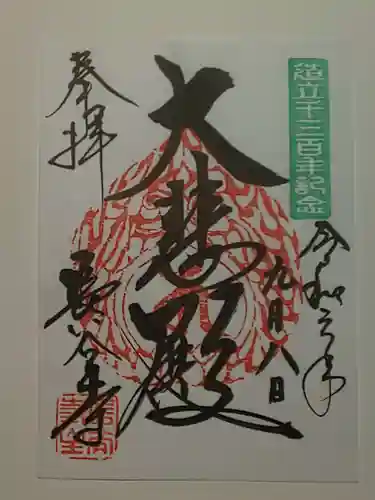 造立千三百年記念
奉拝
令和六年
九月八日
大悲殿
長谷寺